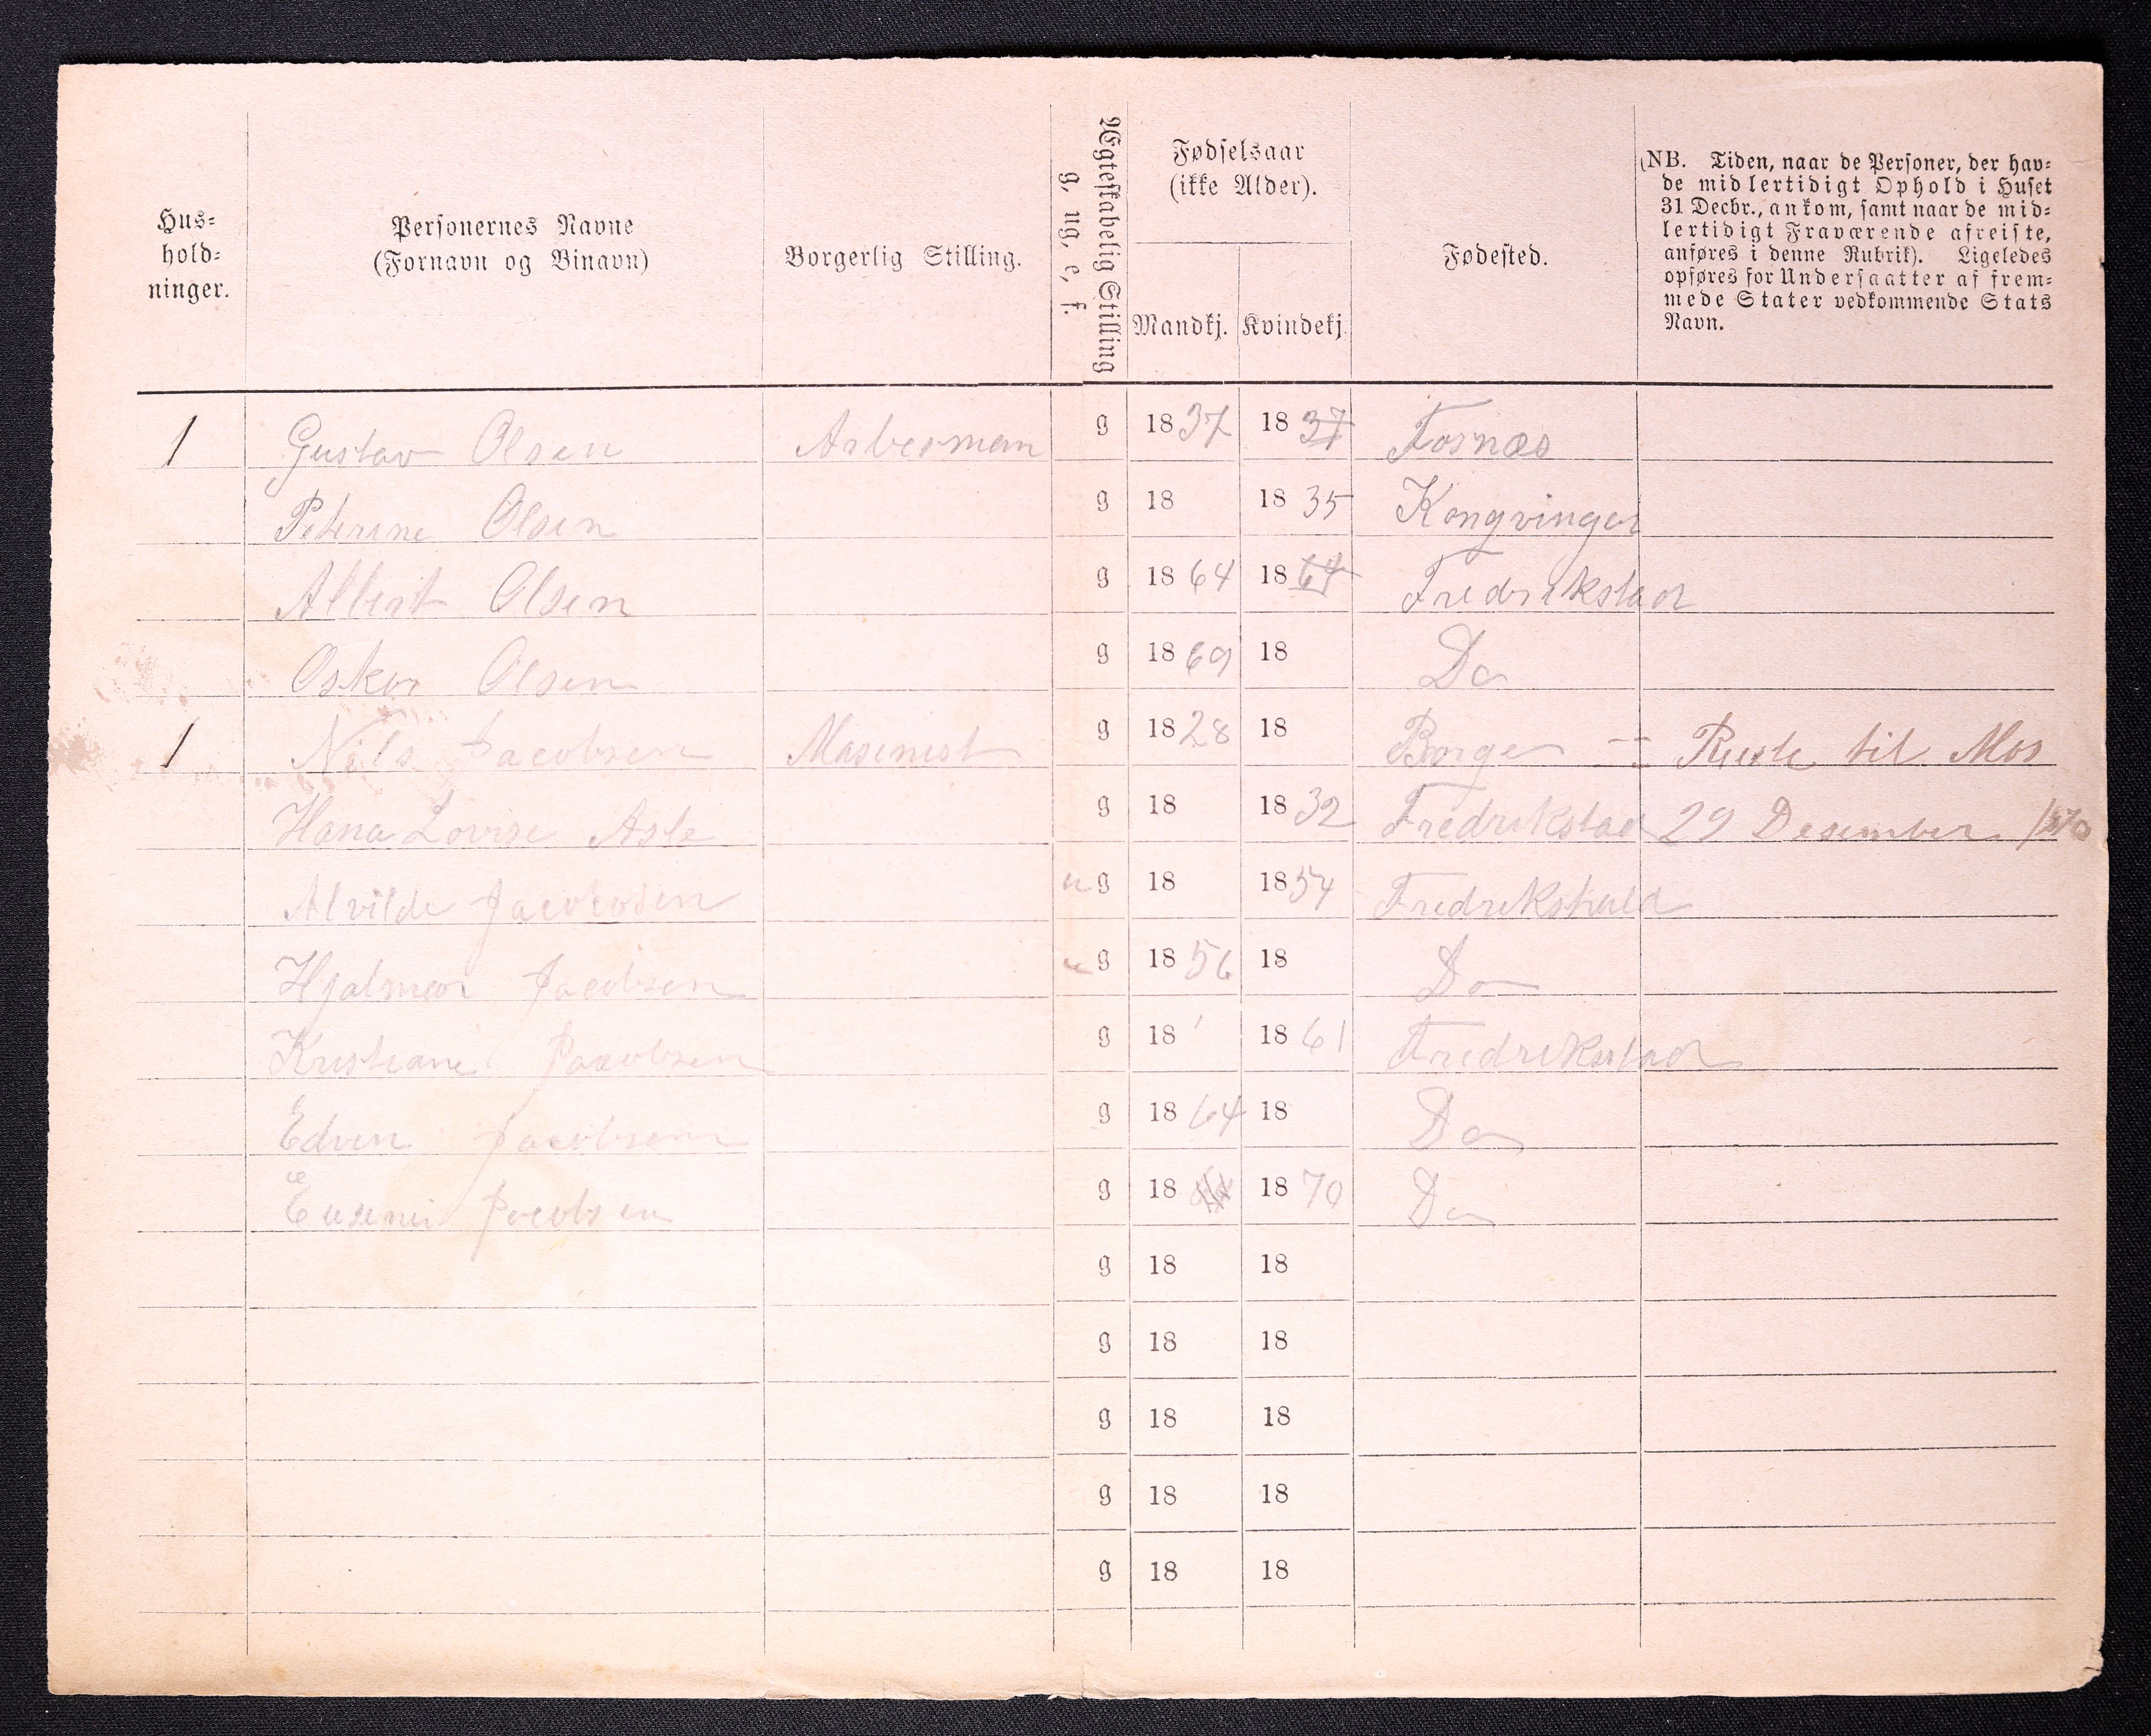 Hus-
hold-
ninger.
Personernes Navne
(Fornavn og Binavn)
Borgerlig Stilling.
Ægteskabelig Stilling
g, ug, e, f.
Fødselsaar
(ikke Alder).
Mandkj. Kvindekj.
Fødested.
(NB. Tiden, naar de Personer, der hav-
de midlertidigt Ophold i Huset
31 Decbr., ankom, samt naar de mid-
lertidigt Fraværende afreiste,
anføres i denne Rubrik). Ligeledes
opføres for Undersaatter af frem-
mede Stater vedkommende Stats
Navn.
1 Gustav Olsen Arbesman g 1837 1837 Fosnæs
Olsen g 18 1835 Kongvinger
Albert Olsen g 1864 1864 Fredrikstad
Oskar Olsen g 1869 18 Do
1 Nils Jacobsen Masinest g 1828 18 Borge Reste til Mos
Hana Lovise Asle g 18 1832 Fredrikstad 29 Desember
Alvilde Jacobsen ug 18 1854 Fredrikshald
Hjalmar Jacobsen g 1856 18 Do
Kristiane Jacobsen g 18 1861 Fredrikstad
Edven Jacobsen g 1864 18 Do
Jacobsen g 18 1870 Do
g 18 18
g 18 18
g 18 18
g 18 18
g 18 18